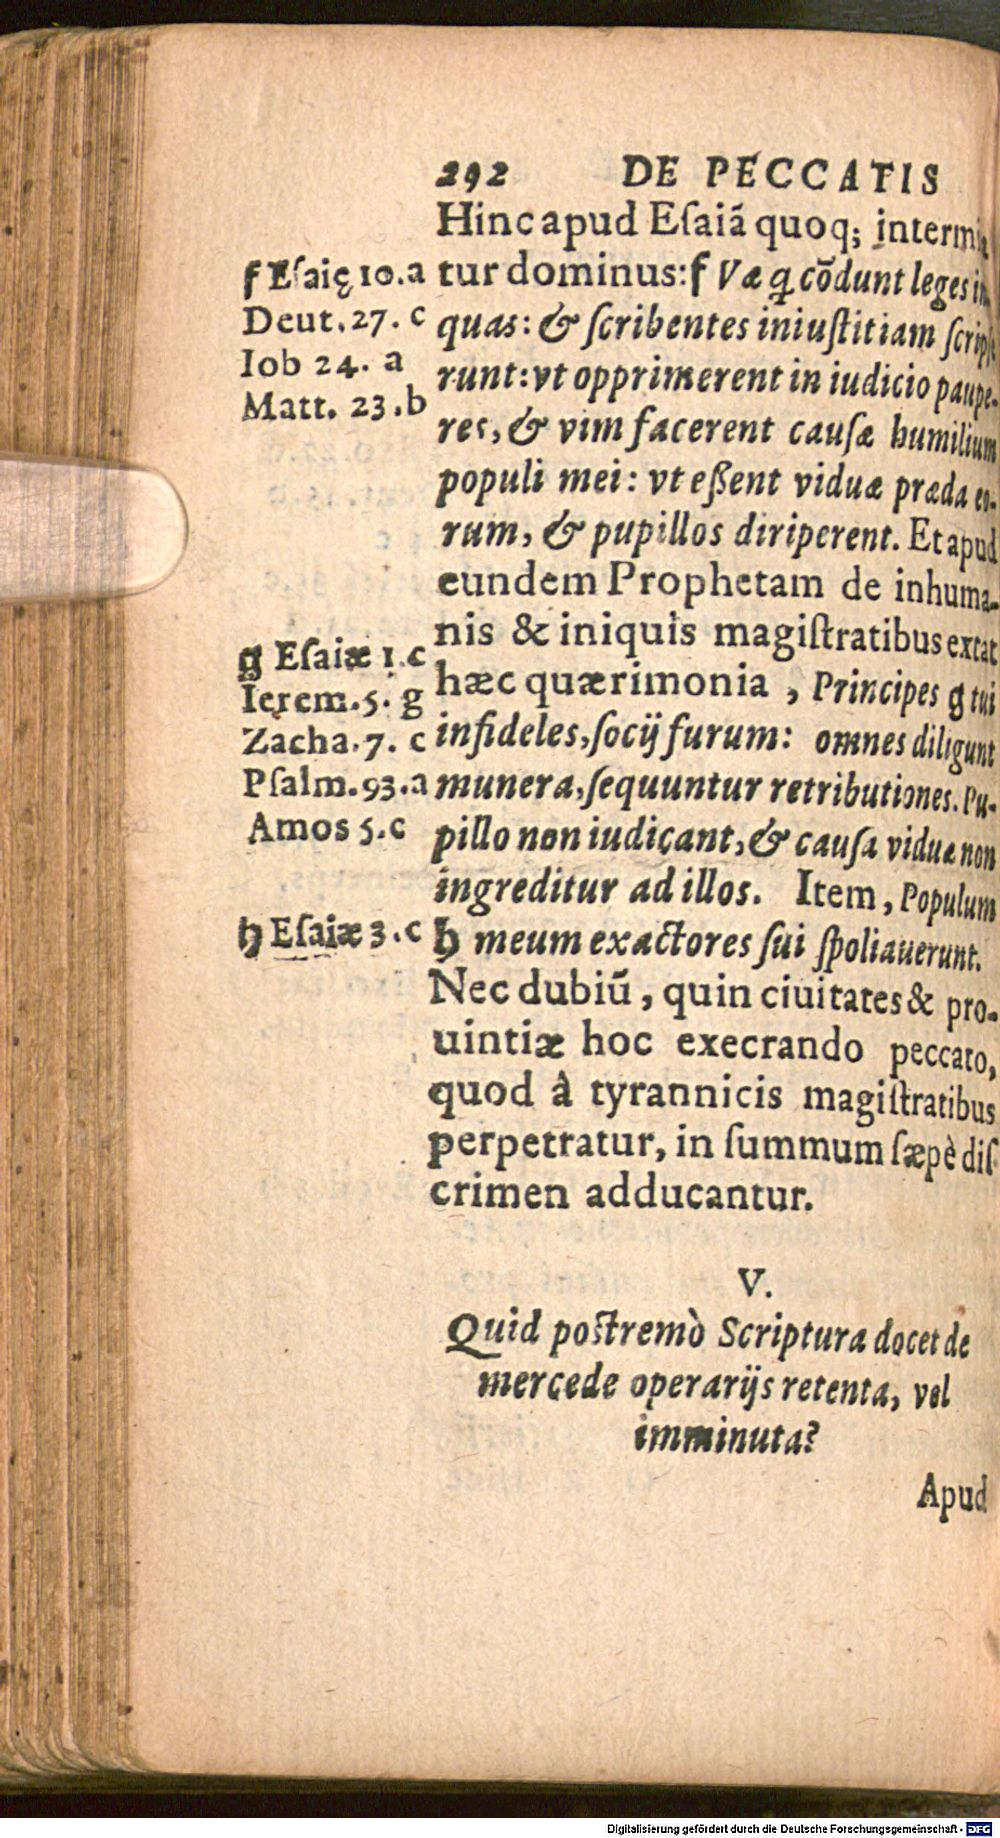 292 DE PECCATIS
Hinc apud Eſaiā quoq; intermi
tur dominus: f Væ q̃ cōdunt leges in
quas: & ſcribentes iniuſtitiam ſcripſe
runt: vt opprimerent in iudicio paupe-
res, & vim facerent cauſæ humilium
populi mei: vt eßent viduæ præda eo-
rum, & pupillos diriperent. Et apud
eundem Prophetam de inhuma-
nis & iniquis magiſtratibus extat
hæc quærimonia, Principes g tui
infideles, ſocij furum: omnes diligunt
munera, ſequuntur retributiones. Pu-
pillo non iudicant, & cauſa viduæ non
ingreditur ad illos. Item, Populum
h meum exactores ſui ſpoliauerunt.
Nec dubiū, quin ciuitates & pro-
uintiæ hoc execrando peccato,
quod à tyrannicis magiſtratibus
perpetratur, in ſummum ſæpè diſ
crimen adducantur.
f Eſaię 10.a
Deut. 27. c
Iob 24. a
Matt. 23.b
g Eſaiæ 1.c
Ierem. 5. g
Zacha. 7. c
Pſalm. 93.a
Amos 5.c
h Eſaiæ 3.c
V.
Quid poſtremò Scriptura docet de
mercede operarijs retenta, vel
imminuta?
Apud
Digitalisierung gefördert durch die Deutsche Forschungsgemeinschaft - DFG